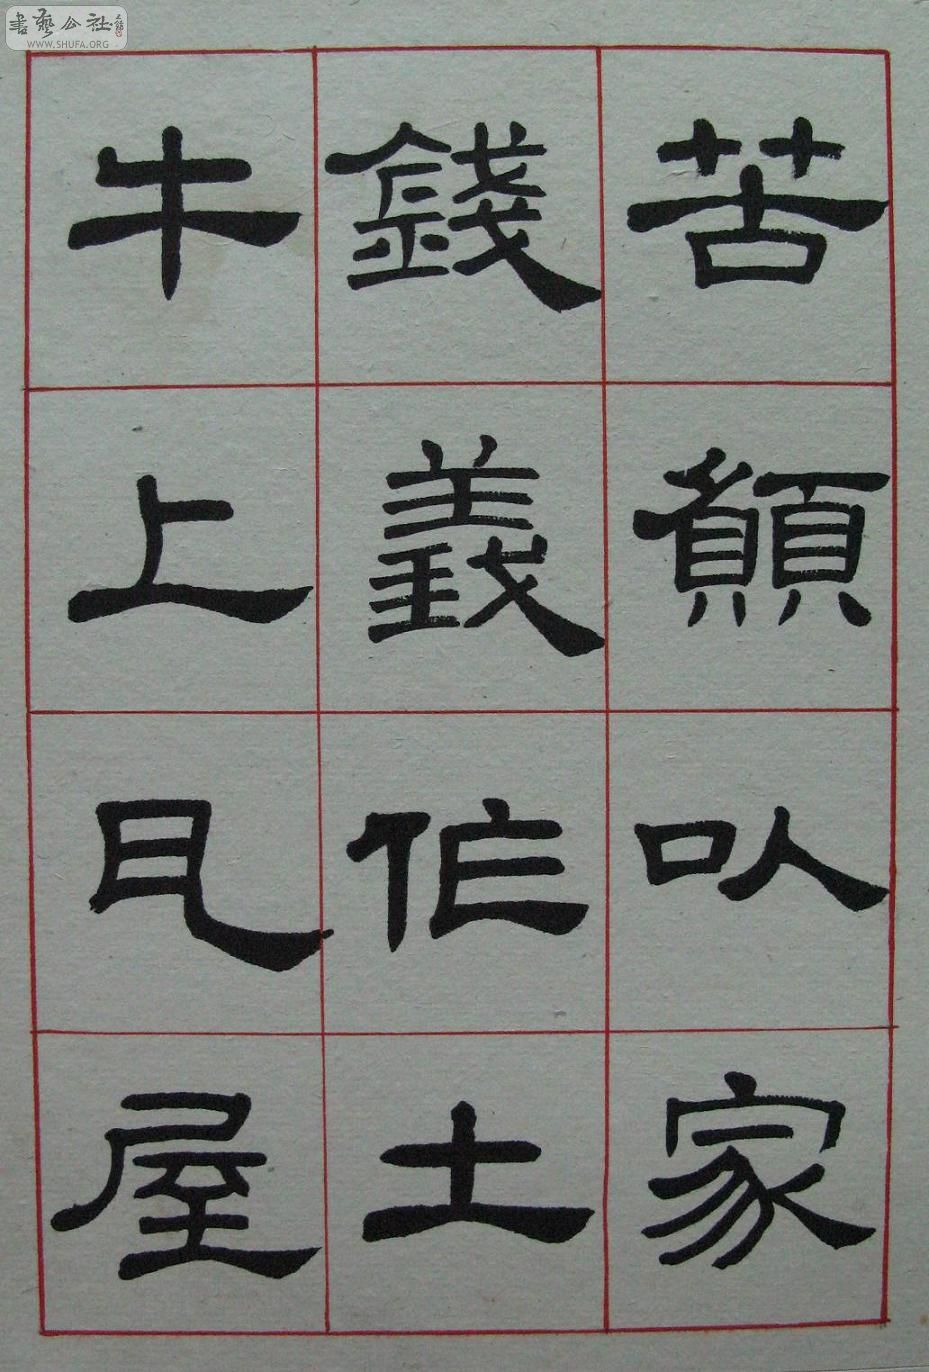 書藝公社
WWW.SHUFA.ORG
苦願以家
錢義作土
牛上瓦屋